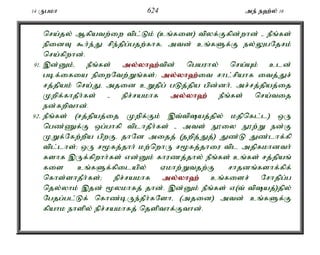 14 ருபமா 624 அந் நஹ்ல் 16
செய்தல் ஆகியவற்றை விட்டும் (உங்களை) விலக்குகின்றான் - நீங்கள்
நினைவு கூர்ந்து சிந்திப்பதற்காக, அவன் உங்களுக்கு நல்லுபதேசம்
செய்கிறான்.
91. இன்னும், நீங்கள் அல்லாஹ்வின் பெயரால் செய்யும் உடன்
படிக்கையை நிறைவேற்றுங்கள்; அல்லாஹ்வை சாட்சியாக வைத்துச்
சத்தியம் செய்து, அதனை உறுதிப் படுத்திய பின்னர், அச்சத்தியத்தை
முறிக்காதீர்கள் - நிச்சயமாக அல்லாஹ் நீங்கள் செய்வதை
நன்கறிவான்.
92. நீங்கள் (சத்தியத்தை முறிக்கும் இவ்விஷயத்தில் மதிகெட்ட) ஒரு
பெண்ணுக்கு ஒப்பாகி விடாதீர்கள் - அவள் நூலை நூற்று நன்கு
முறுக்கேற்றிய பிறகு, தானே அதைத் (தறித்துத்) துண்டு துண்டாக்கி
விட்டாள்; ஒரு சமூகத்தார் மற்றொரு சமூகத்தாரை விட அதிகமானவர்
களாக இருக்கிறார்கள் என்னும் காரணத்தால் நீங்கள் உங்கள் சத்தியங்
களை உங்களுக்கிடையில் ஏமாற்றுவதற்கு சாதனங்களாக்கிக்
கொள்ளாதீர்கள்; நிச்சயமாக அல்லாஹ் உங்களைச் சோதிப்ப
தெல்லாம் இதன் மூலமாகத் தான். இன்னும் நீங்கள் எ(வ் விஷயத்)தில்
பேதப்பட்டுக் கொண்டிருந்தீர்களோ, (அதனை) அவன் உங்களுக்கு
கியாம நாளில் நிச்சயமாகத் தெளிவாக்குவான்.